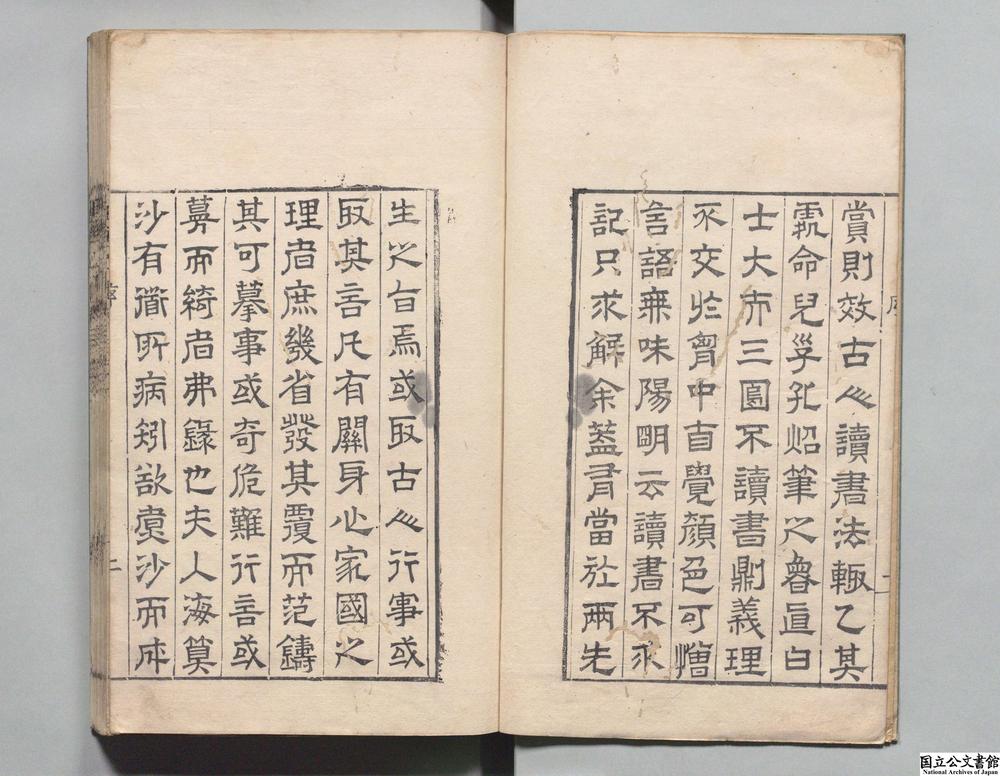 賞則效古人讀書法輙乙其
命兒孚孔炤筆之魯直曰
士大夫三日不讀書則義理
不交於胷中自覺顏色可憎
言語無味陽明云讀書不求
記只求解余葢當於兩先
序
一
生之旨焉或取古人行事或
取其言凡有關身心家國之
理者庶幾省發其覆而范鑄
其可摹事或奇危難行言或
而綺者弗錄也夫人海算
沙有道所病矧欲沙而成
序
二
国立公文書館
National Archives of Japan